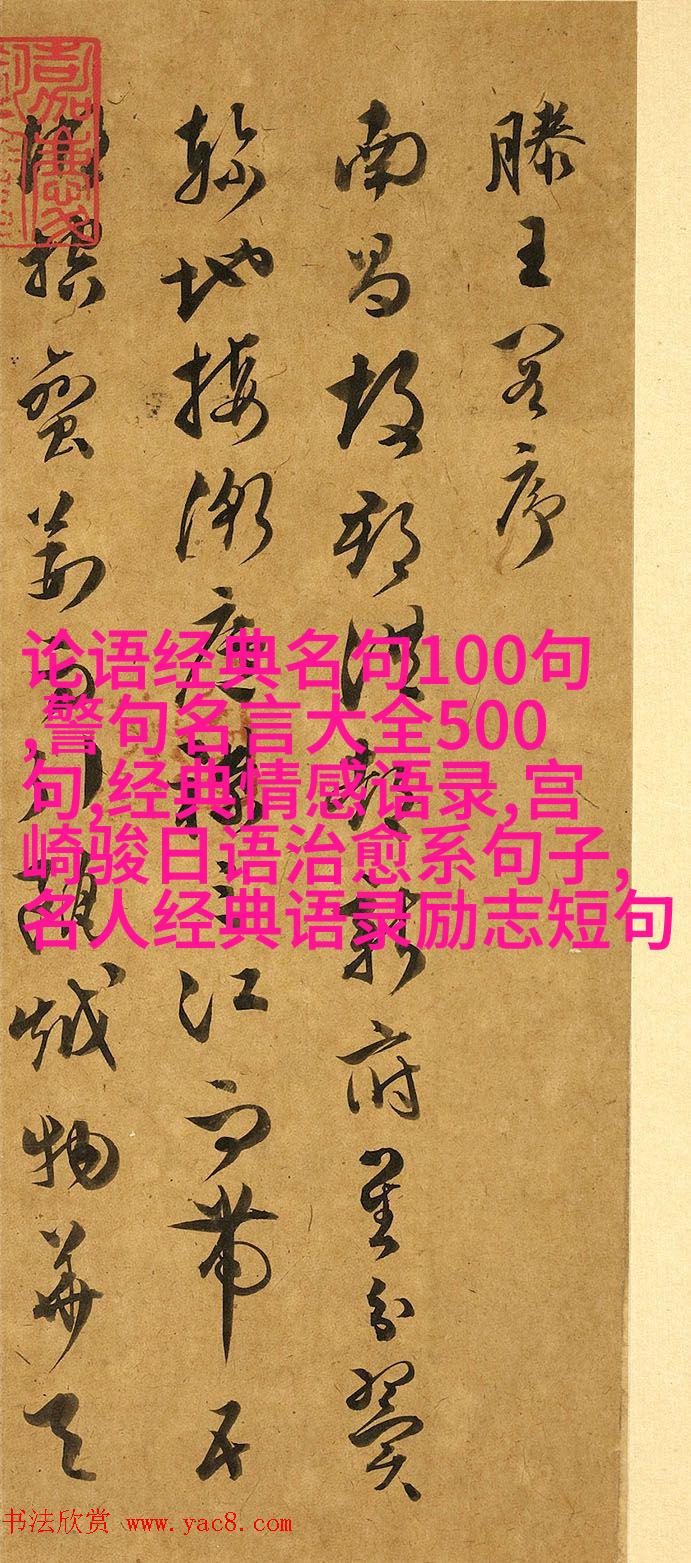 滕王閣序
南昌故郡洪都新府星分翼
軫地接衡廬襟三江而帶五
湖控蠻荊而引甌越物華天
论语经典名句100句
,警句名言大全500
句,经典情感语录,宫
崎骏日语治愈系句子,
名人经典语录励志短句
书法欣赏 www.yac8.com